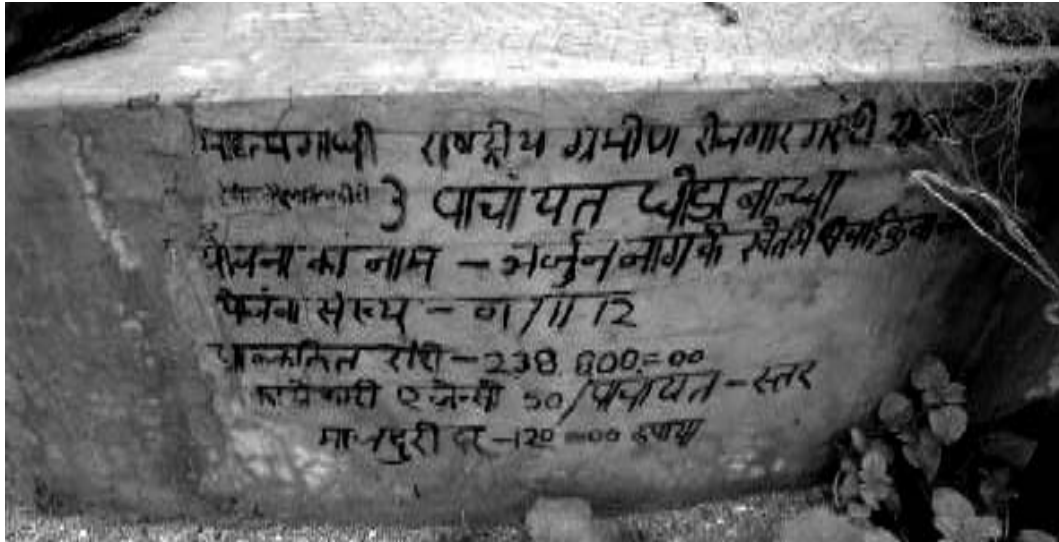 महात्मगान्धी राष्ट्रीय ग्रमीण रोजगार गारंटी
3 पाचांयत घोडाबान्धा
योजना का नाम - अर्जुन नाग के खेत मे
योजंना संख्य - 01/11-12
प्राक्कलित राशि - 238 800=00
कार्यकारी एजेन्सी 50/पाचांयत - स्तर
माजदुरी दर - 120=00 रुपाया